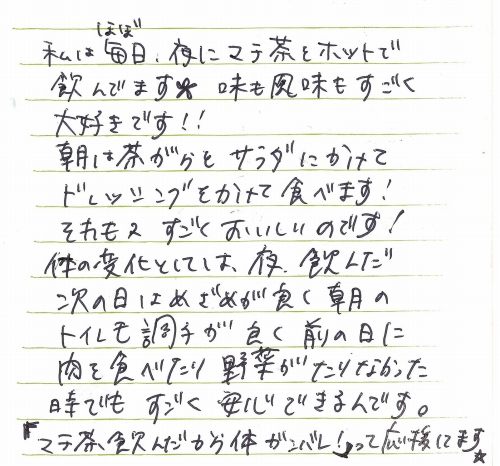 ほぼ
私は毎日、夜にマテ茶をホットで
飲んでます★ 味も風味もすごく
大好きです!!
朝は茶がらをサラダにかけて
ドレッシングをかけて食べます!
それも又すごくおいしいのです!
体の変化としては、夜、飲んだ
次の日はめざめが良く朝の
トイレも調子が良く前の日に
肉を食べたり野菜がたりなかった
時でもすごく安心できるんです。
『マテ茶飲んだから体ガンバレ!』って応援してます☆